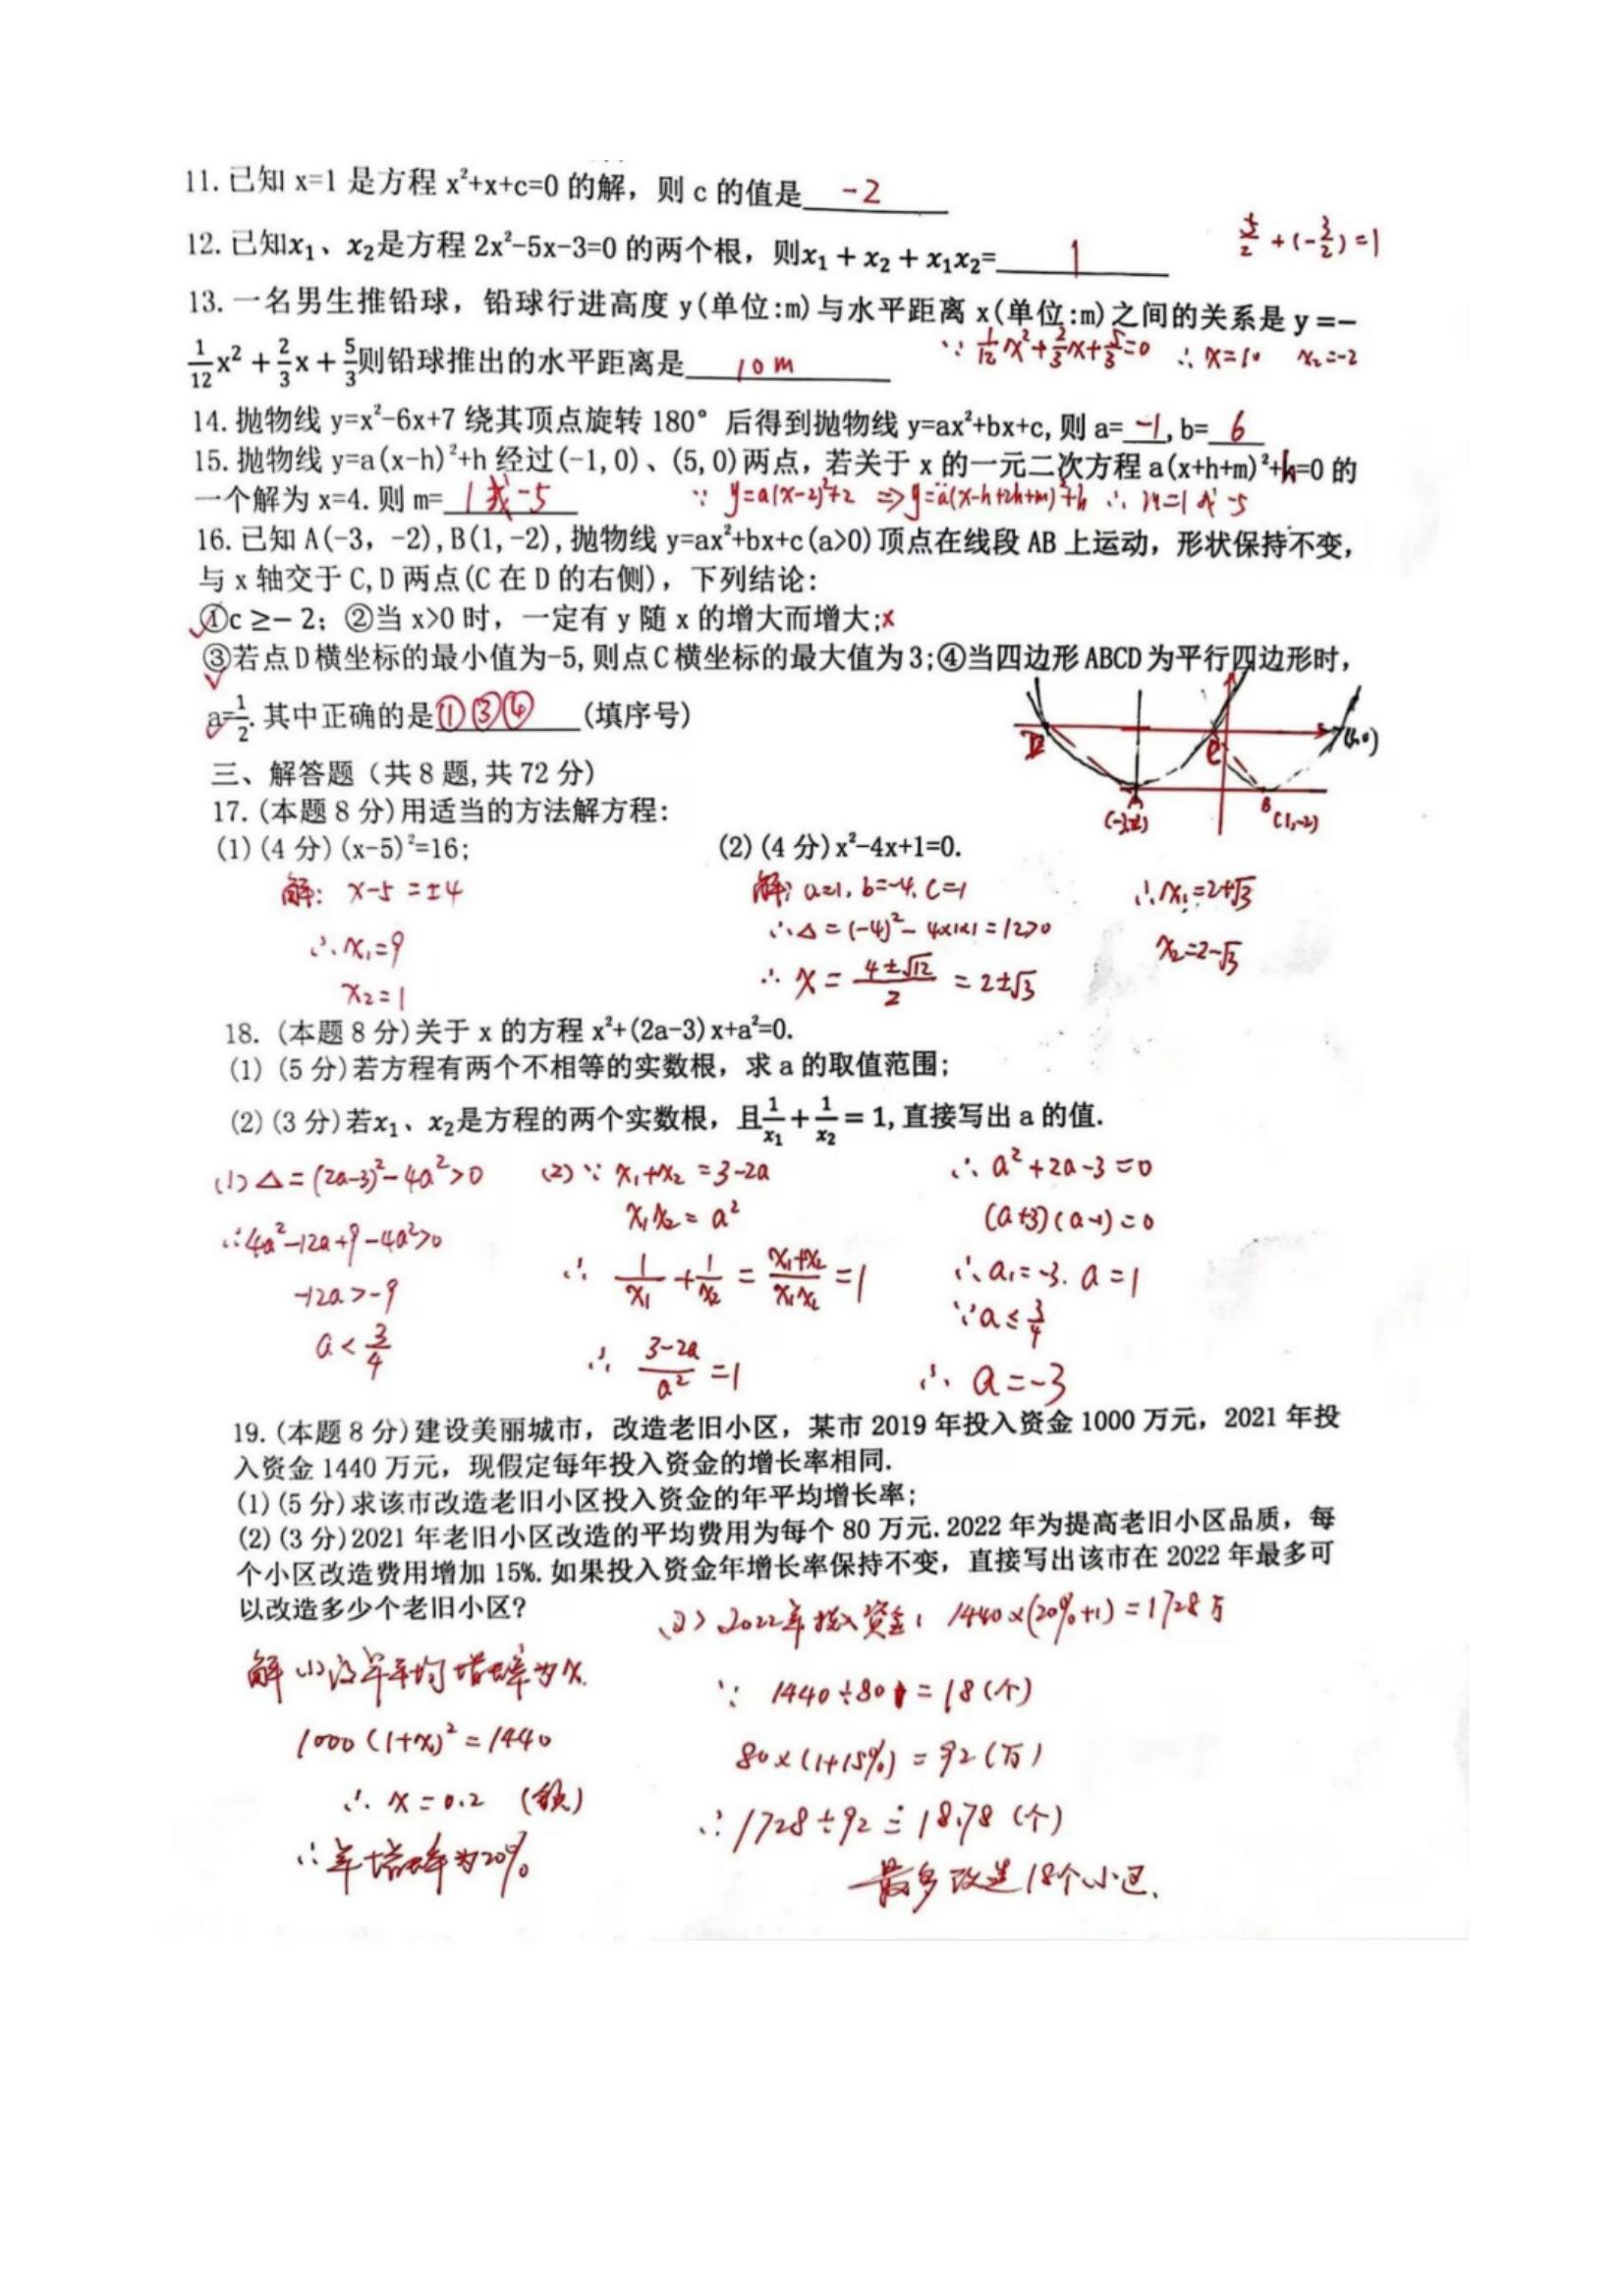 11.已知 x=1 是方程 x²+x+c=0 的解，则 c 的值是 -2
12.已知x₁、x₂是方程 2x²-5x-3=0 的两个根，则x₁+x₂+x₁x₂= 1 5/2+(-3/2)=1
13.一名男生推铅球，铅球行进高度 y(单位:m)与水平距离 x(单位:m)之间的关系是 y=-
1/12x²+2/3x+5/3则铅球推出的水平距离是 10m ∵ 1/12x²+2/3x+5/3=0 ∴x=10 x₂=-2
14.抛物线 y=x²-6x+7 绕其顶点旋转 180° 后得到抛物线 y=ax²+bx+c,则 a= -1 ,b= 6
15.抛物线 y=a(x-h)²+h 经过(-1,0)、(5,0)两点，若关于 x 的一元二次方程 a(x+h+m)²+h=0 的
一个解为 x=4.则 m= 1或-5 ∵ y=a(x-2)²+2 ⇒y=a(x-h+2h+m)²+h ∴ m=1或-5
16.已知 A(-3，-2),B(1,-2),抛物线 y=ax²+bx+c(a>0)顶点在线段 AB 上运动，形状保持不变，
与 x 轴交于 C,D 两点(C 在 D 的右侧)，下列结论：
✓①c≥-2；②当 x>0 时，一定有 y 随 x 的增大而增大;×
③若点 D 横坐标的最小值为-5,则点 C 横坐标的最大值为 3;④当四边形 ABCD 为平行四边形时，
✓
a=1/2.其中正确的是①③④(填序号)
D C (3,0)
A B
(-3,-2) (1,-2)
三、解答题（共 8 题,共 72 分）
17.(本题 8 分)用适当的方法解方程：
(1)(4 分)(x-5)²=16; (2)(4 分)x²-4x+1=0.
解: x-5=±4 解: a=1, b=-4, c=1 ∴x₁=2+√3
∴△=(-4)²-4×1×1=12>0
∴x₁=9 x₂=2-√3
∴x=(4±√12)/2=2±√3
x₂=1
18.(本题 8 分)关于 x 的方程 x²+(2a-3)x+a²=0.
(1)(5 分)若方程有两个不相等的实数根，求 a 的取值范围；
(2)(3 分)若x₁、x₂是方程的两个实数根，且1/x₁+1/x₂=1,直接写出 a 的值.
(1)△=(2a-3)²-4a²>0 (2)∵ x₁+x₂=3-2a ∴a²+2a-3=0
x₁x₂=a² (a+3)(a-1)=0
∴4a²-12a+9-4a²>0
∴ 1/x₁+1/x₂=(x₁+x₂)/(x₁x₂)=1 ∴a₁=-3. a=1
-12a>-9
∵a≤3/4
a<3/4
∴ (3-2a)/a²=1 ∴ a=-3
19.(本题 8 分)建设美丽城市，改造老旧小区，某市 2019 年投入资金 1000 万元，2021 年投
入资金 1440 万元，现假定每年投入资金的增长率相同.
(1)(5 分)求该市改造老旧小区投入资金的年平均增长率；
(2)(3 分)2021 年老旧小区改造的平均费用为每个 80 万元.2022 年为提高老旧小区品质，每
个小区改造费用增加 15%.如果投入资金年增长率保持不变，直接写出该市在 2022 年最多可
以改造多少个老旧小区?
(2)2022年投入资金: 1440×(20%+1)=1728万
解 (1)设年平均增长率为x.
∵ 1440÷80=18(个)
1000(1+x)²=1440
80×(1+15%)=92(万)
∴x=0.2
∴1728÷92≐18.78(个)
∴年增长率为20%
最多改造18个小区.